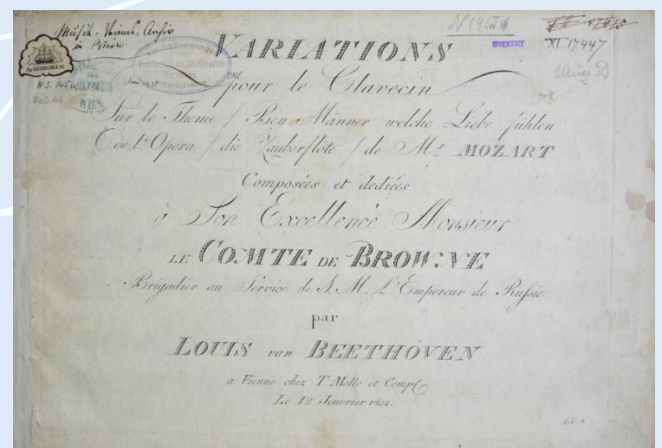 Musik-Vereins-Archiv
in Wien
N 195
INVENTIRT
XI 17447
A. HOBOKEN
WIEN
VARIATIONS
pour le Clavecin
Sur le Theme / Bey Männer welche Liebe fühlen
de l'Opera / die Zauberflöte / de Mr. MOZART
Composées et dediées
à Son Excellence Monsieur
LE COMTE DE BROWNE
Brigadier au Service de S. M. L'Empereur de Russie
par
LOUIS van BEETHOVEN
à Vienne chez T. Mollo et Comp
Le 1r Janvier 1802.